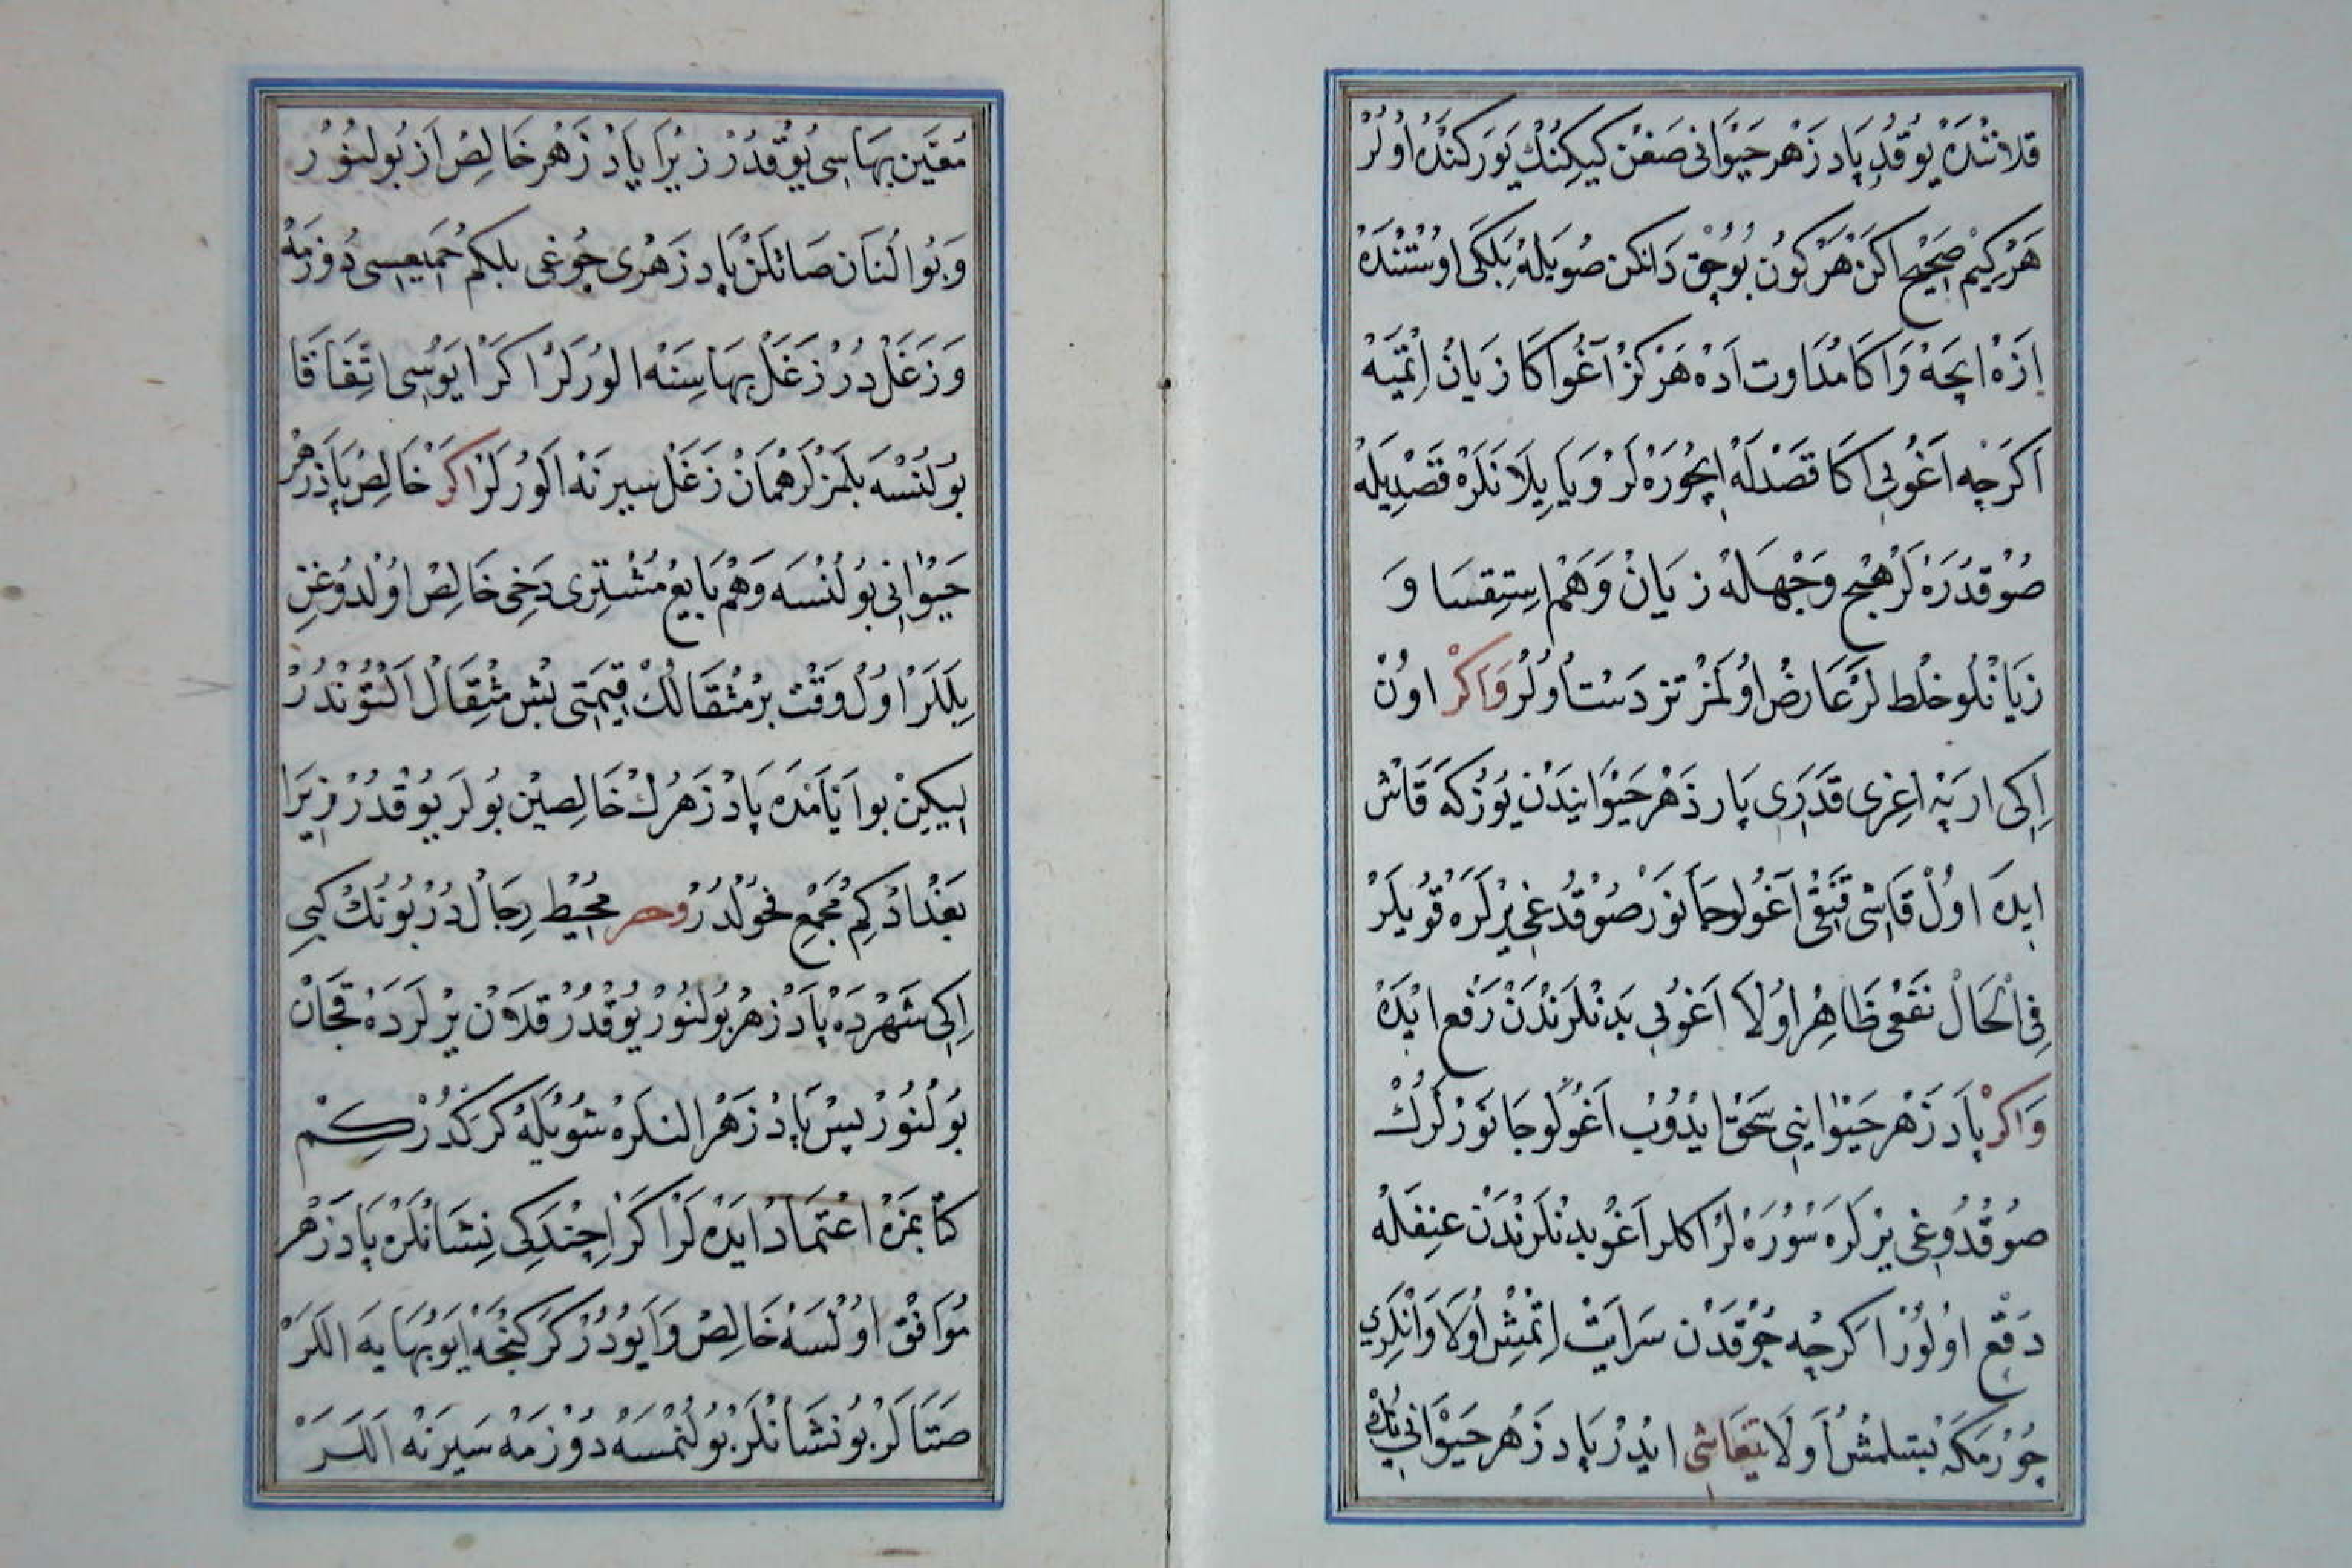 قلاننده يوقدر پاد زهر حيوانى صغن كيكنك يوركنده اولر
هركيم صحيح اكن هركون بوچق دانكن صويله بلكى اوستنده
ازه ايچه واكا مداوت اده هركز آغو اكا زيان اتميه
اكرچه اغوىى اكا قصدله ايچوره لر ويا ييلانلره قصديله
صوقدره لر هيچ وجهله زيان وهم استقسا و
زيانلو خلط لر عارض اولمز تزدست اولر واكر اون
ايكى ارپه اغرى قدرى پاد زهر حيوانيدن يوزكه قاش
ايده اول قاشى قنقى آغولو جانور صوقدغى يرلره قويلر
فى الحال نفعى ظاهر اولا اغويى بدنلرندن رفع ايده
واكر پاد زهر حيوانيى سحق ايدوب اغولو جانورلرك
صوقدوغى يرلره سوره لر اكلر اغو بدنلرندن عنفله
دفع اولور اكرچه چوقدن سرايت اتمش اولا وانلرى
چورمكه بتسلمش اولا تيعاشى ايدر پاد زهر حيوانينك
معين بهاسى يوقدر زيرا پاد زهر خالص از بولنور
وبو اكنان صاتلن پاد زهرى چوغى بلكم جميعسى دوزمه
وزغل در زغل بهاسنه الورلر اكر ايوسى اتفاقا
بولنسه بلمزلر همان زغل سيرنه الورلر اكر خالص پاذزهر
حيوانى بولنسه وهم بايع مشترى دخى خالص اولدوغن
بيلرلر اول وقت بر مثقالك قيمتى بش مثقال التوندر
ليكن بو ايامده پاد زهرك خالصين بولر يوقدر زيرا
بغداد كم مجمع فحولدر ومصر محيط رجال در بونك كبى
ايكى شهرده پاد زهر بولنور يوقدر قلان يرلرده قچان
بولنور پس پاد زهر النلره شويله كركدر كم
كتابمزه اعتماد ايده لر اكر اچندكى نشانلره پاد زهر
موافق اولسه خالص وايودر كركنجه ايو بهايه الكر
صتالر بو نشانلر بولنمسه دوزمه سيرنه الكر